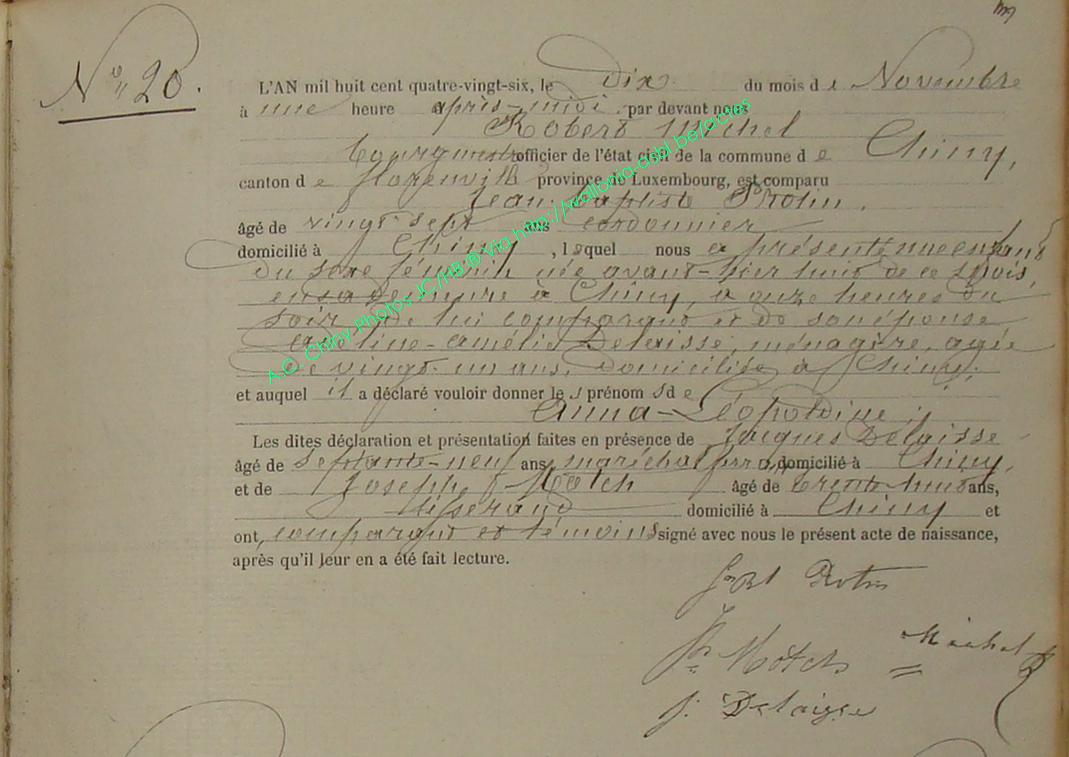 N° 20.
L'AN mil huit cent quatre-vingt-six, le Dix du mois de Novembre
à une heure après-midi par devant nous
Robert Michel
bourgmestre officier de l'état civil de la commune de Chiny,
canton de Florenville province de Luxembourg, est comparu
Jean Baptiste
âgé de vingt sept ans cordonnier
domicilié à Chiny, lequel nous a présenté une enfant
du sexe féminin née avant-hier huit de ce mois,
en sa demeure à Chiny, à onze heures du
soir, de lui comparant et de son épouse
Amélie Delaisse, ménagère, agée
de vingt-un ans, domiciliée à Chiny,
et auquel il a déclaré vouloir donner les prénoms de
Anna-Léopoldine
Les dites déclaration et présentation faites en présence de Jacques Delaisse
âgé de septante-neuf ans, maréchal domicilié à Chiny,
et de Joseph Môtch âgé de trente huit ans,
tisserand domicilié à Chiny et
ont, comparant et témoins signé avec nous le présent acte de naissance,
après qu'il leur en a été fait lecture.
Môtch Michel
J. Delaisse
A.C. Chiny-Photos JC/HB © Via http://wallonia-asbl.be/actes